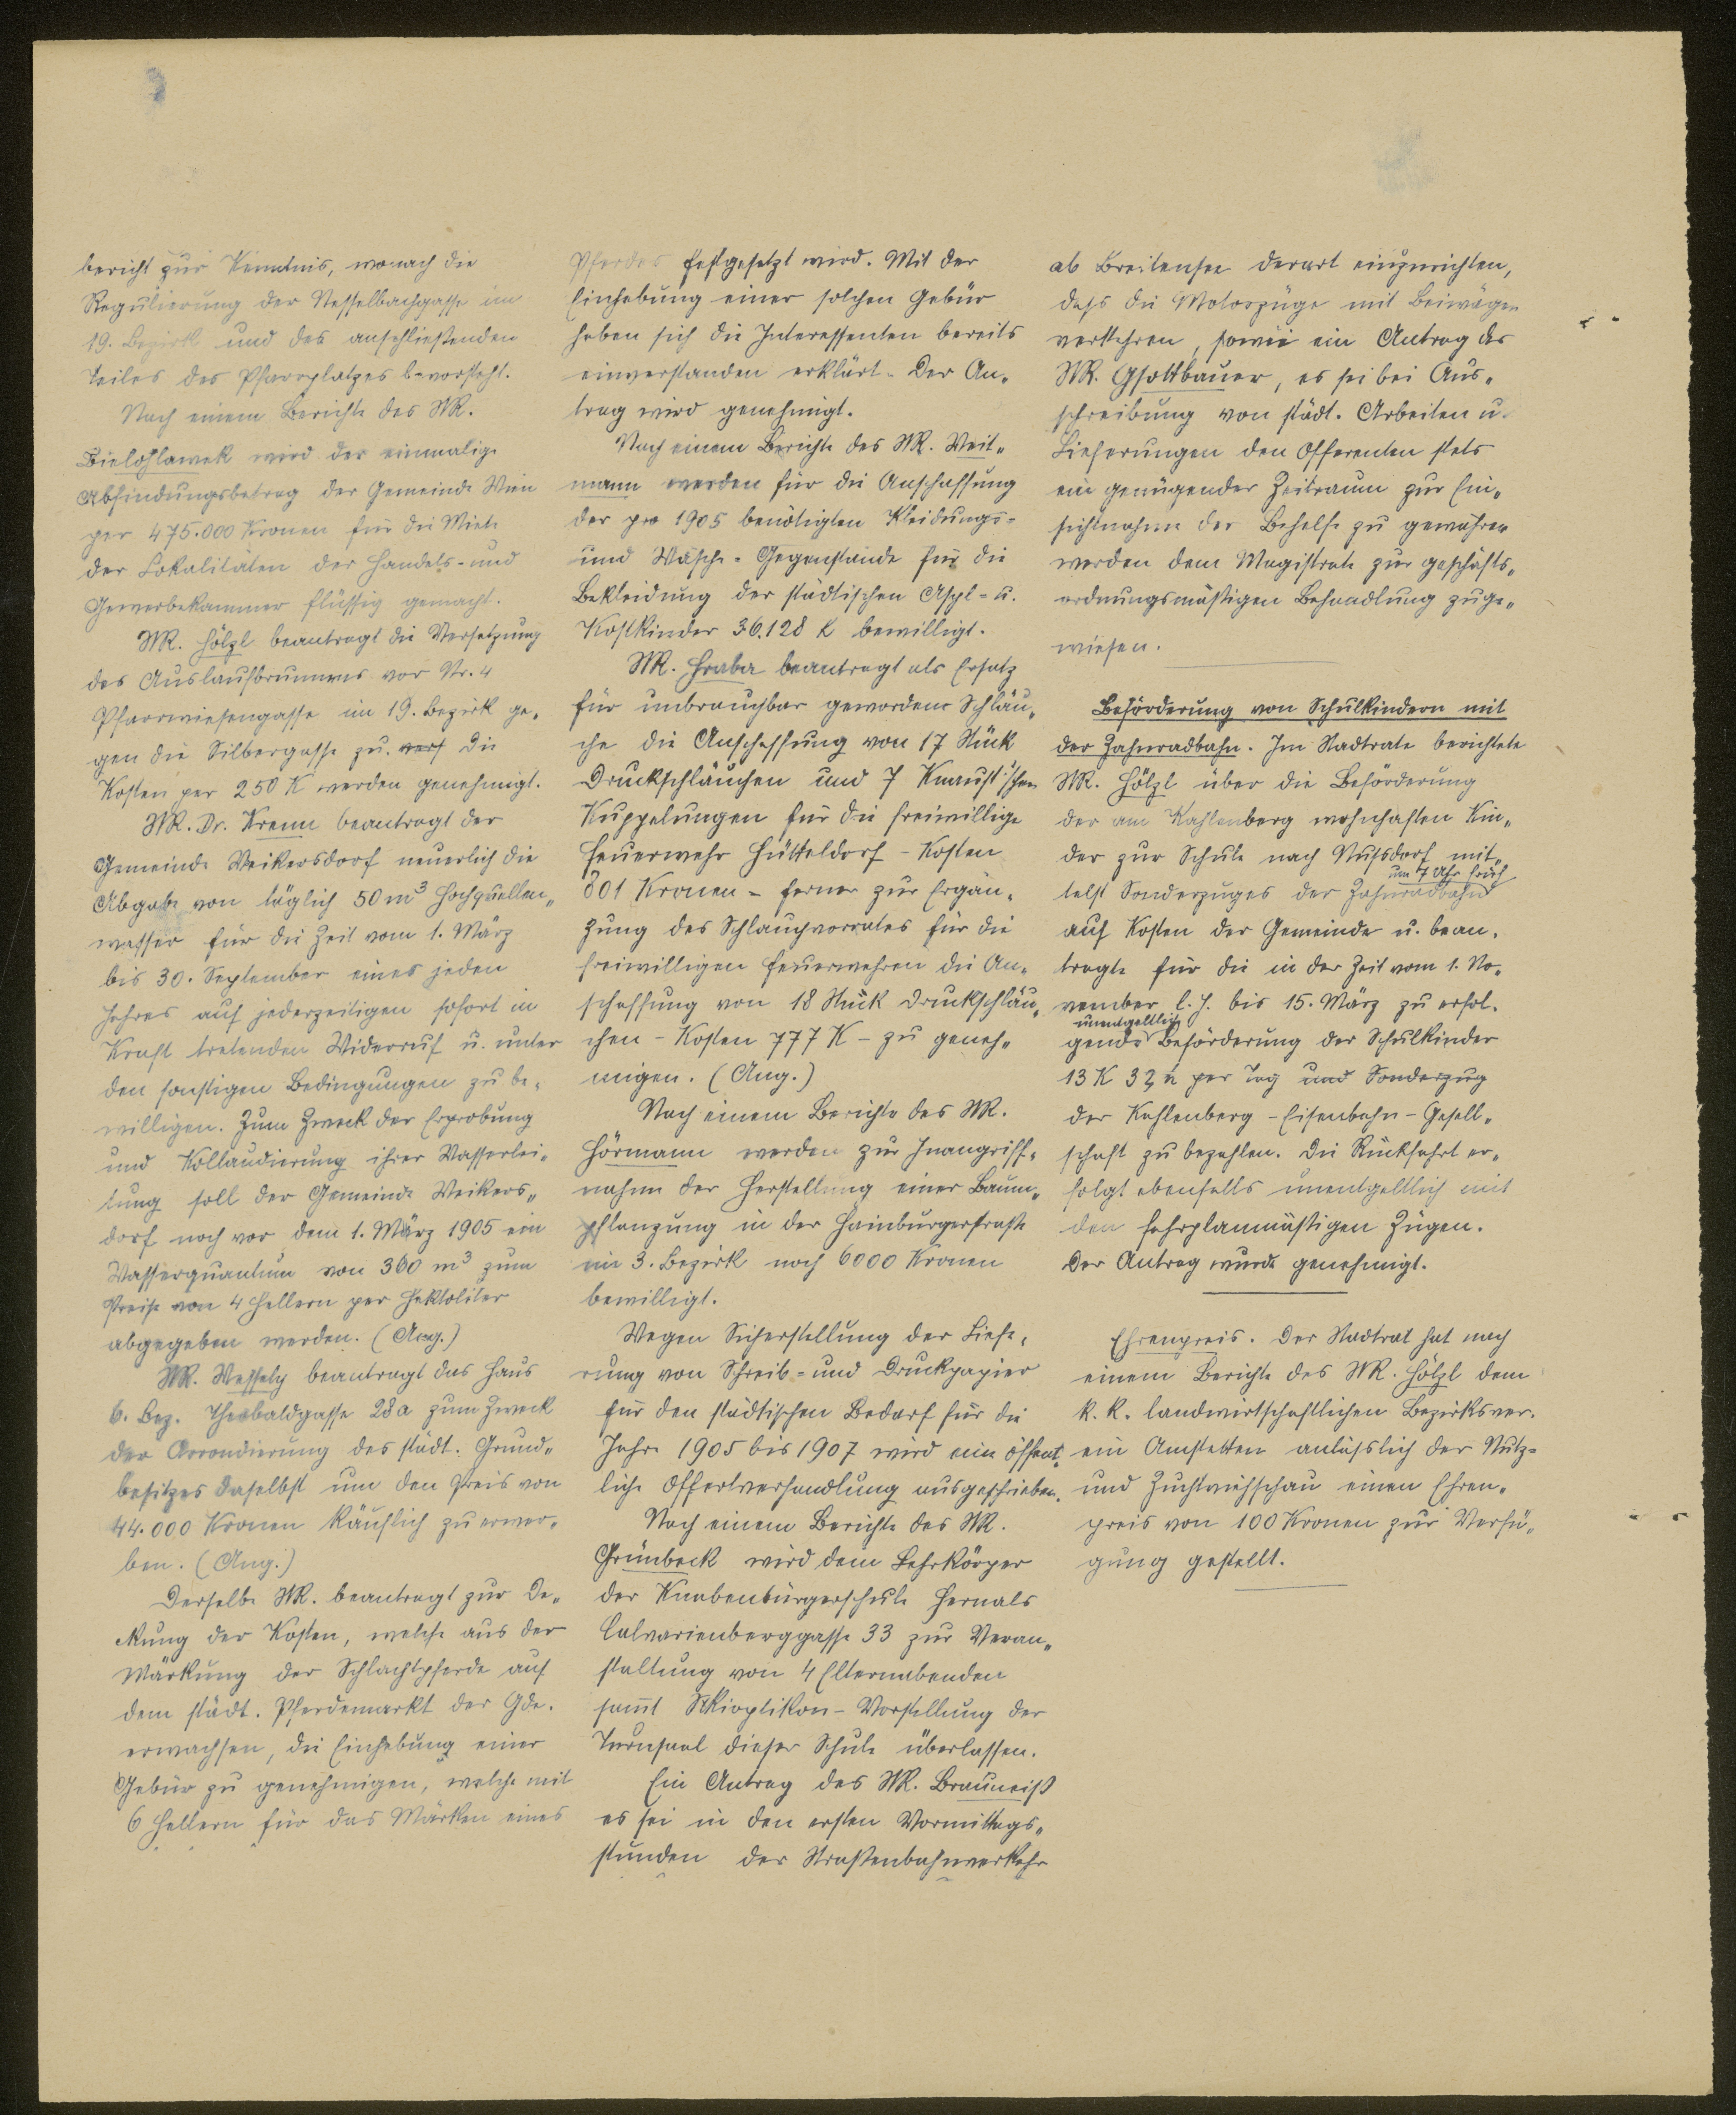 bericht zur Kenntnis, wonach die
Regulierung der Nesselbachgasse im
19. Bezirk und des anschließenden
Teiles des Pfarrplatzes bevorsteht.
Nach einem Berichte des StR.
Bielohlawek wird der einmalige
Abfindungsbetrag der Gemeinde Wien
per 475.000 Kronen für die Miete
der Lokalitäten der Handels- und
Gewerbekammer flüssig gemacht.
StR. Hölzl beantragt die Versetzung
des Auslaufbrunnens vor Nr. 4
Pfarrwiesengasse im 19. Bezirk ge-
gen die Silbergasse zu. Die
Kosten per 250 K werden genehmigt.
StR. Dr. Krenn beantragt der
Gemeinde Weikersdorf neuerlich die
Abgabe von täglich 50 m³ Hochquellen-
wasser für die Zeit vom 1. März
bis 30. September eines jeden
Jahres auf jederzeitigen sofort in
Kraft tretenden Widerruf u. unter
den sonstigen Bedingungen zu be-
willigen. Zum Zweck der Erprobung
und Kollaudierung ihrer Wasserlei-
tung soll der Gemeinde Weikers-
dorf noch vor dem 1. März 1905 ein
Wasserquantum von 360 m³ zum
Preise von 4 Hellern per Hektoliter
abgegeben werden. (Ang.)
StR. Wessely beantragt das Haus
6. Bez. Theobaldgasse 28a zum Zweck
der Arrondierung des städt. Grund-
besitzes daselbst um den Preis von
44.000 Kronen käuflich zu erwer-
ben. (Ang.)
Derselbe StR. beantragt zur De-
ckung der Kosten, welche aus der
Märkung der Schlachtpferde auf
dem städt. Pferdemarkt der Gde.
erwachsen, die Einhebung einer
Gebür zu genehmigen, welche mit
6 Hellern für das Märken eines
Pferdes festgesetzt wird. Mit der
Einhebung einer solchen Gebür
haben sich die Interessenten bereits
einverstanden erklärt. Der An-
trag wird genehmigt.
Nach einem Berichte des StR. Weit-
mann werden für die Anschaffung
der pro 1905 benötigten Kleidungs-
und Wäsche-Gegenstände für die
Bekleidung der städtischen Asyl- u.
Kostkinder 36.128 K bewilligt.
StR. Hraba beantragt als Ersatz
für unbrauchbar gewordene Schläu-
che die Anschaffung von 17 Stück
Druckschläuchen und 7 Knaust'schen
Kuppelungen für die freiwillige
Feuerwehr Hütteldorf - Kosten
801 Kronen - ferner zur Ergän-
zung des Schlauchvorrates für die
freiwilligen Feuerwehren die An-
schaffung von 18 Stück Druckschläu-
chen - Kosten 777 K - zu geneh-
migen. (Ang.)
Nach einem Berichte des StR.
Hörmann werden zur Inangriff-
nahme der Herstellung einer Baum-
pflanzung in der Hainburgerstraße
im 3. Bezirk noch 6000 Kronen
bewilligt.
Wegen Sicherstellung der Liefe-
rung von Schreib- und Druckpapier
für den städtischen Bedarf für die
Jahre 1905 bis 1907 wird eine öffent-
liche Offertverhandlung ausgeschrieben.
Nach einem Berichte des StR.
Grünbeck wird dem Lehrkörper
der Knabenbürgerschule Hernals
Calvarienberggasse 33 zur Veran-
staltung von 4 Elternabenden
samt Skioptikon-Vorstellung der
Turnsaal dieser Schule überlassen.
Ein Antrag des StR. Brauneiß
es sei in den ersten Vormittags-
stunden der Straßenbahnverkehr
ab Breitensee derart einzurichten,
daß die Motorzüge mit Beiwägen
verkehren, sowie ein Antrag des
StR. Gsottbauer, es sei bei Aus-
schreibung von städt. Arbeiten u.
Lieferungen den Offerenten stets
ein genügender Zeitraum zur Ein-
sichtnahme der Behelfe zu gewähren
werden dem Magistrate zur geschäfts-
ordnungsmäßigen Behandlung zuge-
wiesen.
Beförderung von Schulkindern mit
der Zahnradbahn. Im Stadtrate berichtete
StR. Hölzl über die Beförderung
der am Kahlenberg wohnhaften Kin-
der zur Schule nach Nußdorf mit-
um 7 Uhr früh
telst Sonderzuges der Zahnradbahn
auf Kosten der Gemeinde u. bean-
tragte für die in der Zeit vom 1. No-
vember l. J. bis 15. März zu erfol-
unentgeltliche
gende Beförderung der Schulkinder
13 K 32 h per Tag und Sonderzug
der Kahlenberg-Eisenbahn-Gesell-
schaft zu bezahlen. Die Rückfahrt er-
folgt ebenfalls unentgeltlich mit
den fahrplanmäßigen Zügen.
Der Antrag wurde genehmigt.
Ehrenpreis. Der Stadtrat hat nach
einem Berichte des StR. Hölzl dem
k. k. landwirtschaftlichen Bezirksver-
ein Amstetten anläßlich der Nutz-
und Zuchtviehschau einen Ehren-
preis von 100 Kronen zur Verfü-
gung gestellt.